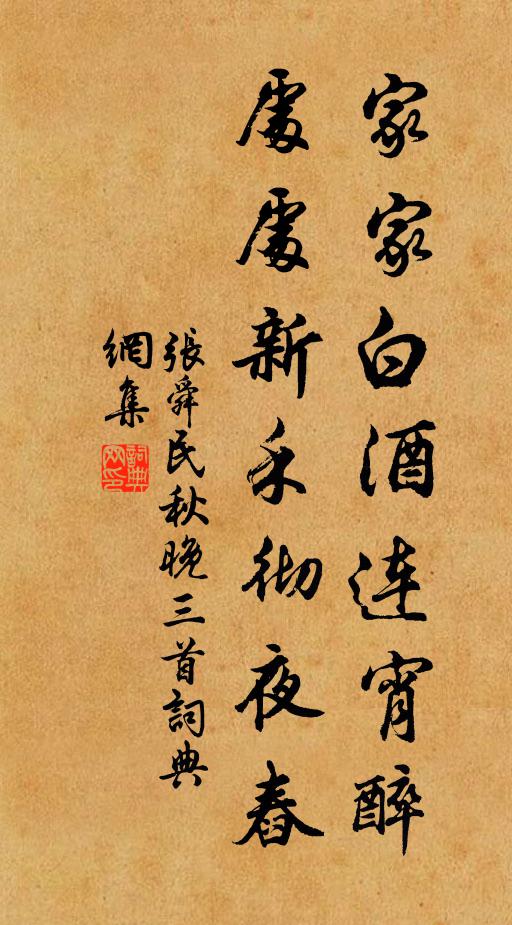 家家白酒連宵醉
處處新禾彻夜舂
張舜民秋晚三首詞典
網集
詞典网印